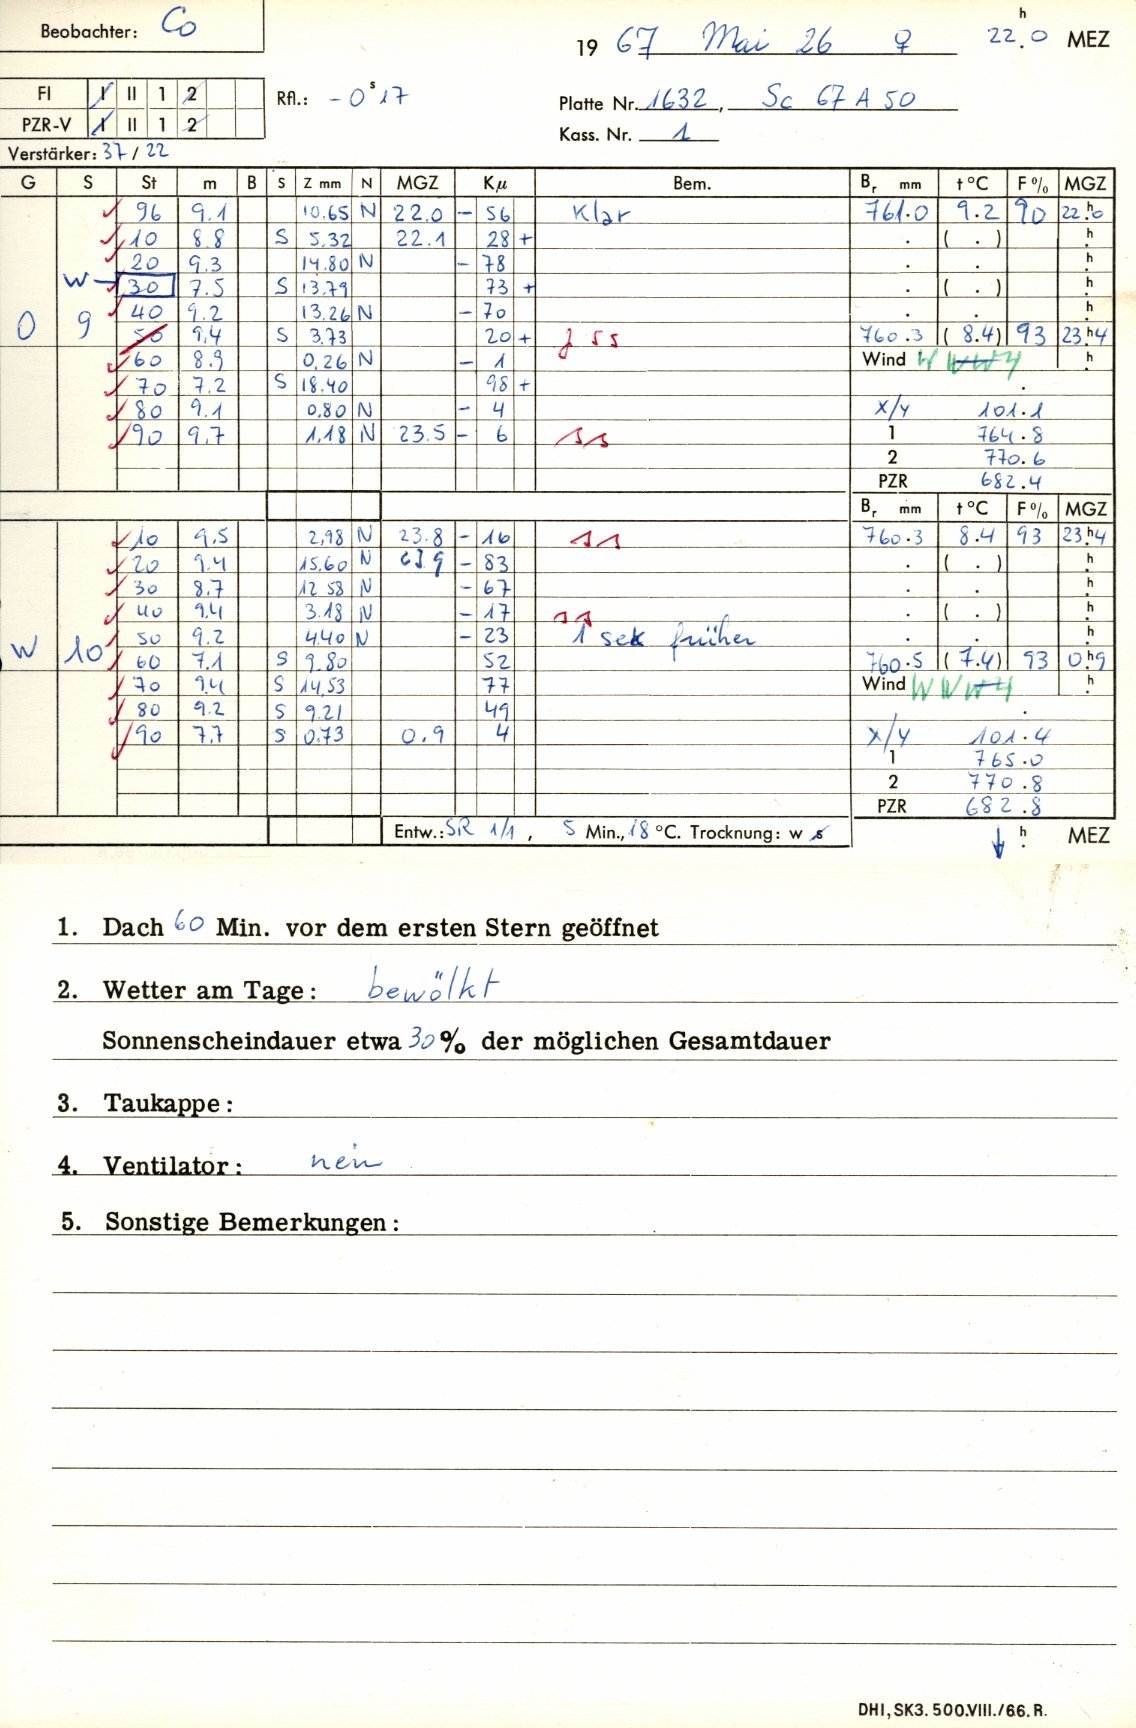 Beobachter: Co
19 67 Mai 26 ♀ 22.0 h MEZ
FI I II 1 2
PZR-V I II 1 2
Rfl.: -0 s 17
Platte Nr. 1632, Sc 67 A 50
Kass. Nr. 1
Verstärker: 37 / 22
G S St m B S Z mm N MGZ Kμ Bem. Br mm t°C F% MGZ
96 9.1 10.65 N 22.0 - 56 Klar 761.0 9.2 90 22.h0
10 8.8 S 5.32 22.1 28 + . ( . ) h
20 9.3 14.80 N - 78 . . h
W 30 7.5 S 13.79 73 + . ( . ) h
0 9 40 9.2 13.26 N - 70 . . h
50 9.4 S 3.73 20 + 760.3 ( 8.4) 93 23.h4
60 8.9 0.26 N - 1 Wind W h
70 7.2 S 18.40 98 +
80 9.1 0.80 N - 4 x/y 101.1
90 9.7 1.18 N 23.5 - 6 1 764.8
2 770.6
PZR 682.4
Br mm t°C F% MGZ
10 9.5 2.98 N 23.8 - 16 760.3 8.4 93 23.h4
20 9.4 15.60 N - 83 . ( . ) h
30 8.7 12 58 N - 67 . . h
40 9.4 3.18 N - 17 . ( . ) h
50 9.2 4.40 N - 23 1 sek früher . . h
W 10 60 7.1 S 9.80 52 760.5 ( 7.4) 93 0.h9
70 9.4 S 14.53 77 Wind h
80 9.2 S 9.21 49
90 7.7 S 0.73 0.9 4 x/y 101.4
1 765.0
2 770.8
PZR 682.8
Entw.: SR 1/1 , 5 Min., 18 °C. Trocknung: w s ↓ h MEZ
1. Dach 60 Min. vor dem ersten Stern geöffnet
2. Wetter am Tage: bewölkt
Sonnenscheindauer etwa 30% der möglichen Gesamtdauer
3. Taukappe:
4. Ventilator: nein
5. Sonstige Bemerkungen:
DHI, SK3. 500.VIII./66. R.